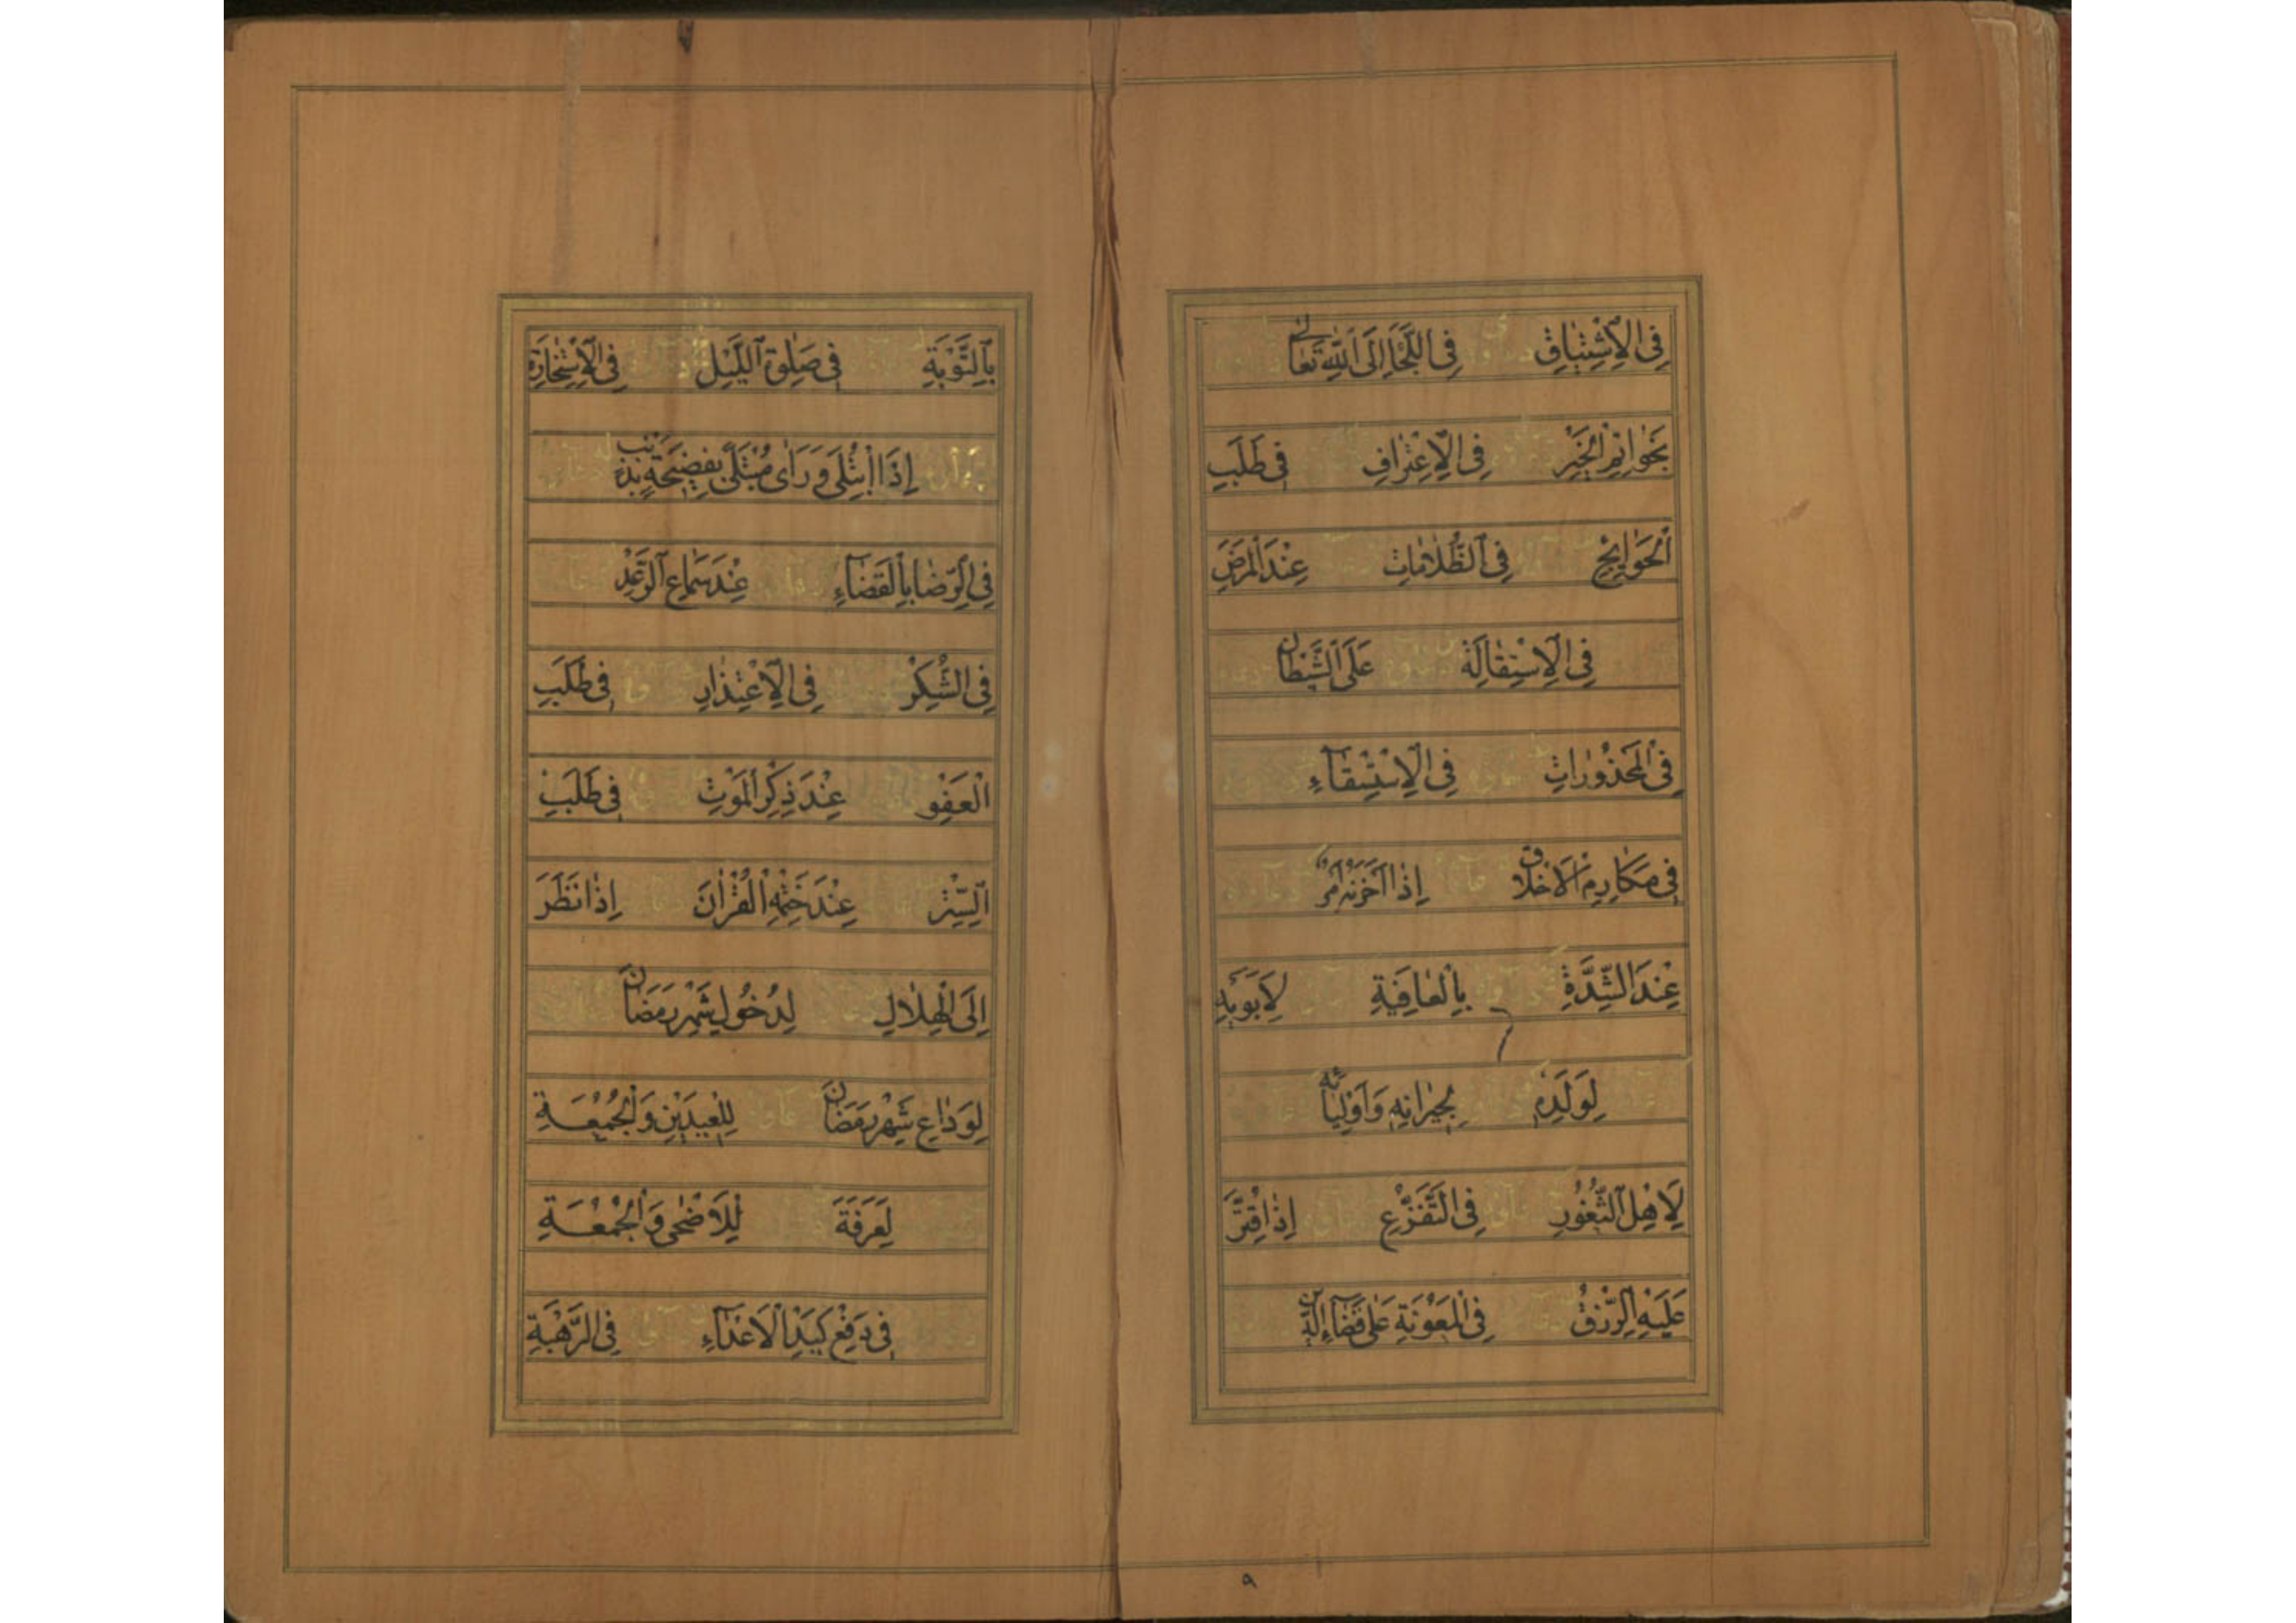 فِى الْاِشْتِيَاقِ فِى اللَّجَأِ اِلَى اللّٰهِ تَعَالٰى
بِخَوَاتِمِ الْخَيْرِ فِى الْاِعْتِرَافِ فِى طَلَبِ
الْحَوَايِجِ فِى الظُّلَامَاتِ عِنْدَ الْمَرَضِ
فِى الْاِسْتِقَالَةِ عَلَى الشَّيْطَانِ
فِى الْمَحْذُورَاتِ فِى الْاِسْتِسْقَآءِ
فِى مَكَارِمِ الْاَخْلَاقِ اِذَا اَحْزَنَهُ اَمْرٌ
عِنْدَ الشِّدَّةِ بِالْعَافِيَةِ لِاَبَوَيْهِ
لِوَلَدِهِ لِجِيرَانِهِ وَاَوْلِيَائِهِ
لِاَهْلِ الثُّغُورِ فِى التَّفَزُّعِ اِذَا قُتِّرَ
عَلَيْهِ الرِّزْقُ فِى الْمَعُونَةِ عَلٰى قَضَآءِ الدَّيْنِ
٩
بِالتَّوْبَةِ فِى صَلٰوةِ اللَّيْلِ فِى الْاِسْتِخَارَةِ
اِذَا ابْتُلِىَ وَرَاٰى مُبْتَلًى بِفَضِيحَةٍ بِذَنْبٍ
فِى الرِّضَا بِالْقَضَآءِ عِنْدَ سَمَاعِ الرَّعْدِ
فِى الشُّكْرِ فِى الْاِعْتِذَارِ فِى طَلَبِ
الْعَفْوِ عِنْدَ ذِكْرِ الْمَوْتِ فِى طَلَبِ
السِّتْرِ عِنْدَ خَتْمِهِ الْقُرْاٰنَ اِذَا نَظَرَ
اِلَى الْهِلَالِ لِدُخُولِ شَهْرِ رَمَضَانَ
لِوَدَاعِ شَهْرِ رَمَضَانَ لِلْعِيدَيْنِ وَالْجُمُعَةِ
لِعَرَفَةَ لِلْاَضْحٰى وَالْجُمُعَةِ
فِى دَفْعِ كَيْدِ الْاَعْدَآءِ فِى الرَّهْبَةِ